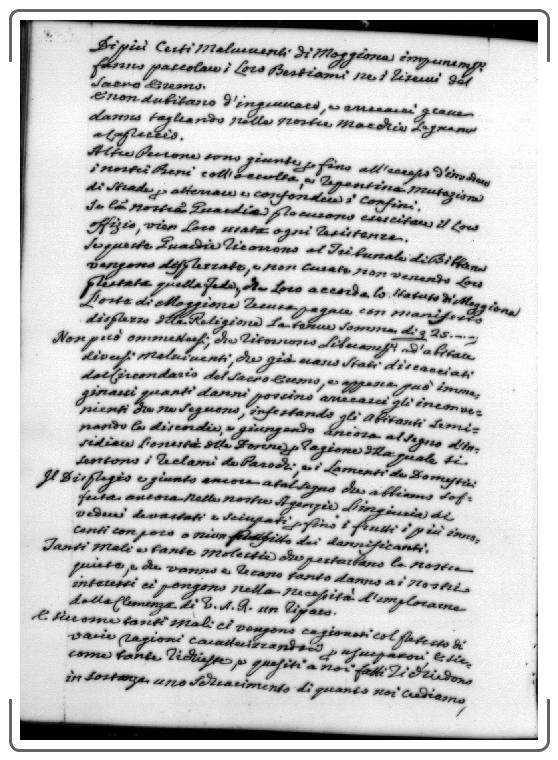 Di più Certi Malviventi di Moggiona impunem.
fanno pascolare i Loro Bestiami ne i Siti del
Sacro Eremo.
E non dubitano d'ingiuriarci, e arrecarci grave
danno tagliando nelle nostre Macchie Legname
a capriccio.
Altre Persone sono giunte p fino all'eccesso d'invadere
i nostri Beni coll'occulta, e repentina mutazione
di Strade p atterrare e confondere i Confini.
Se le nostre Guardie procurono esercitare il Loro
Offizio, vien Loro usata ogni resistenza.
Se queste Guardie ricorrono al Tribunale di Bibbiena
vengono disprezzate, e non curate non venendo Loro
prestata quella fede, che Loro accorda lo Statuto di Moggiona
L'Oste di Moggiona recusa pagare con manifesto
disprezzo della Religione la tenue somma di 25
Non può ommettersi, che ritornono Liberam. ad abitare
diversi Malviventi, che già erano stati discacciati
dal Circondario del Sacro Eremo, e appena può imma-
ginarsi quanti danni possino arrecarci gli inconve-
nienti che ne seguono, infestando gli Abitanti, semi-
nando le discordie, e giungendo ancora al segno d'in-
sidiare l'onestà delle Donne p ragione della quale si
sentono i reclami de Parochi, e i Lamenti de Domestici
Il Dispregio è giunto ancora a tal segno che abbiamo sof-
ferta ancora nelle nostre Agenzie l'ingiuria di
vedere devastati e sciupati p fino i frutti i più inno-
centi con poco o niun profitto dei dannificanti.
Tanti Mali e tante molestie che perturbano la nostra
quiete, e che vanno e recano tanto danno ai nostri
interessi ci pongono nella necessità d'implorare
dalla Clemenza di V. A. R. un riparo.
E siccome tanti mali ci vengono cagionati col pretesto di
varie ragioni
come tante richieste p quesiti a noi fatti si chiedono
in sostanza uno schiarimento di quanto noi crediamo